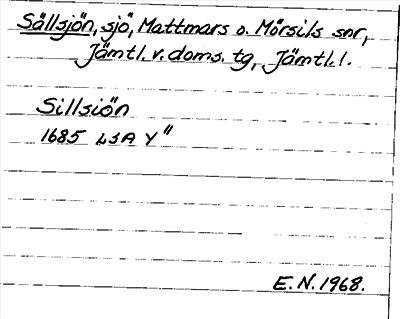 Sällsjön, sjö, Mattmars o. Mörsils snr,
Jämtl. v. doms. tg, Jämtl. l.
Sillsiön
1685 LSA Y"
E. N. 1968.